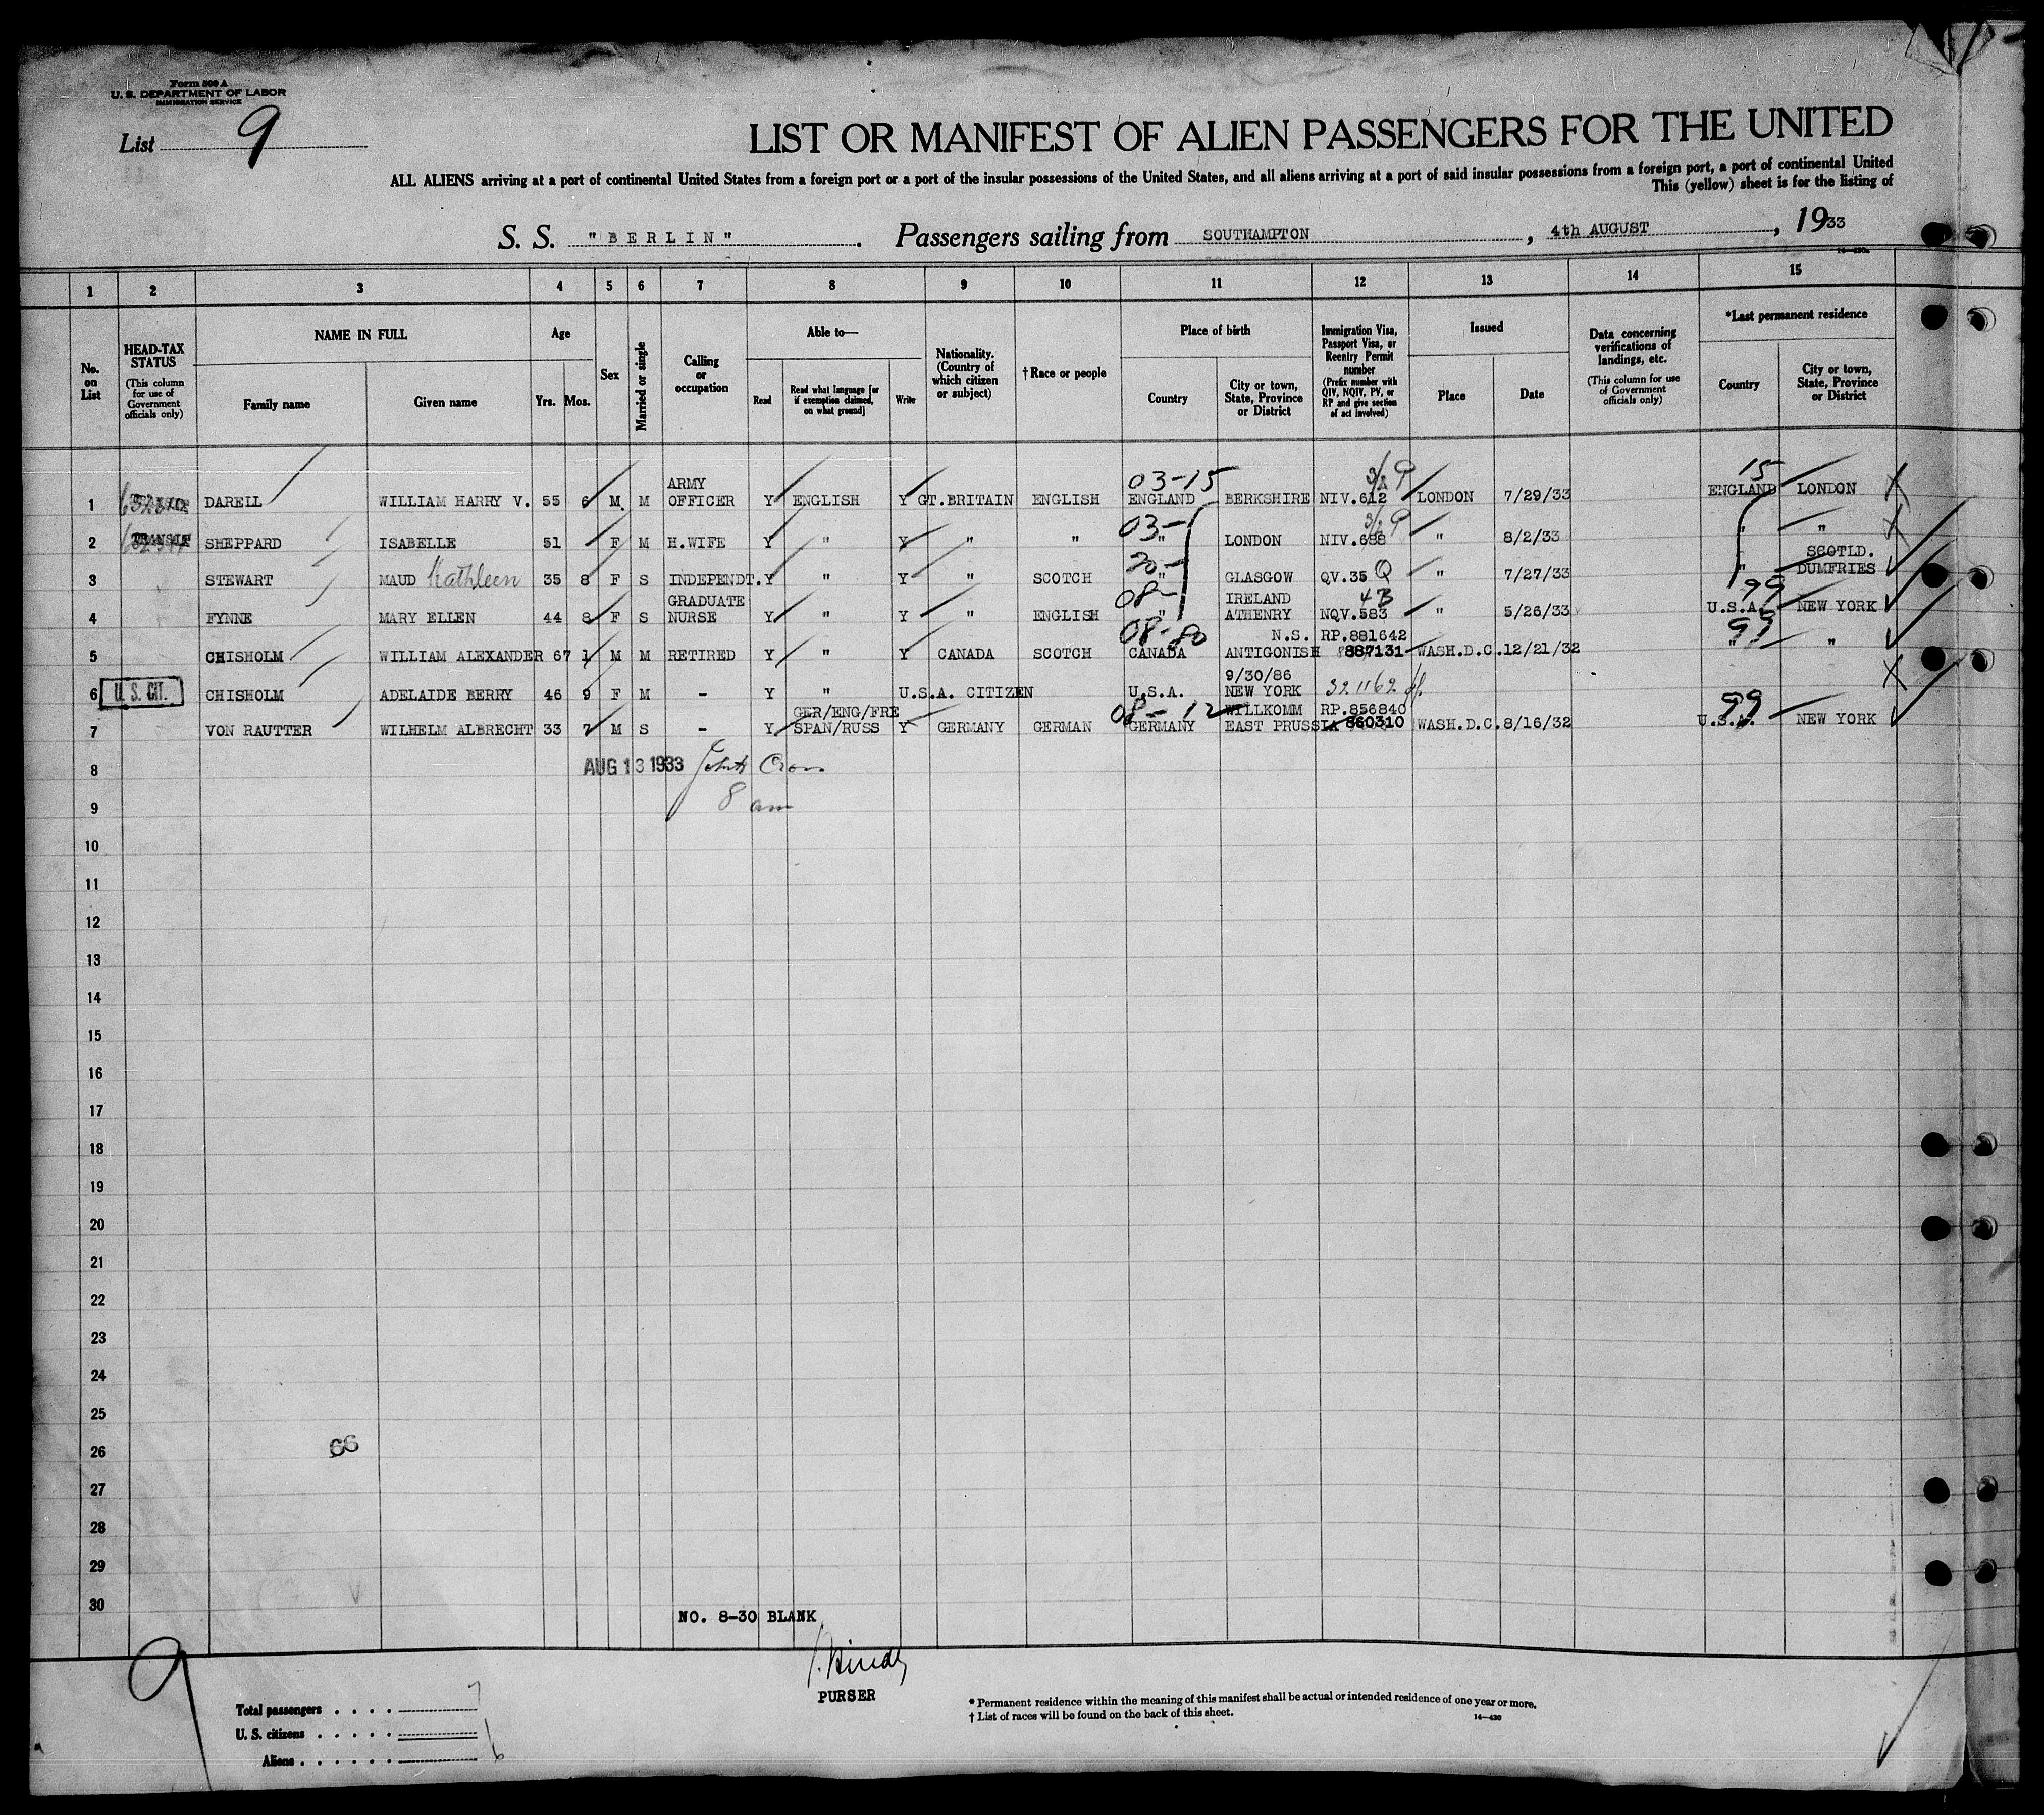 Form 500 A
U. S. DEPARTMENT OF LABOR
IMMIGRATION SERVICE
List 9
LIST OR MANIFEST OF ALIEN PASSENGERS FOR THE UNITED
ALL ALIENS arriving at a port of continental United States from a foreign port or a port of the insular possessions of the United States, and all aliens arriving at a port of said insular possessions from a foreign port, a port of continental United
This (yellow) sheet is for the listing of
S. S. "BERLIN". Passengers sailing from SOUTHAMPTON, 4th AUGUST, 1933
1 2 3 4 5 6 7 8 9 10 11 12 13 14 15
No. on List
HEAD-TAX STATUS (This column for use of Government officials only)
NAME IN FULL
Family name Given name
Age
Yrs. Mos.
Sex
Married or single
Calling or occupation
Able to—
Read
Read what language [or if exemption claimed, on what ground]
Write
Nationality. (Country of which citizen or subject)
†Race or people
Place of birth
Country
City or town, State, Province or District
Immigration Visa, Passport Visa, or Reentry Permit number (Prefix number with QIV, NQIV, PV, or RP and give section of act involved)
Issued
Place Date
Data concerning verifications of landings, etc. (This column for use of Government officials only)
*Last permanent residence
Country
City or town, State, Province or District
03-15 3/2 P 15
1 DARELL WILLIAM HARRY V. 55 6 M M ARMY OFFICER Y ENGLISH Y GT.BRITAIN ENGLISH ENGLAND BERKSHIRE NIV.612 LONDON 7/29/33 ENGLAND LONDON X
03- 3/2 P
2 TRANSIT SHEPPARD ISABELLE 51 F M H.WIFE Y " Y " " " LONDON NIV.688 " 8/2/33 " " X
20- Q
3 STEWART MAUD Kathleen 35 8 F S INDEPENDT. Y " Y " SCOTCH " GLASGOW QV.35 " 7/27/33 " SCOTLD. DUMFRIES
08- 4B 99
4 FYNNE MARY ELLEN 44 8 F S GRADUATE NURSE Y " Y " ENGLISH " IRELAND ATHENRY NQV.583 " 5/26/33 U.S.A. NEW YORK
08-80 99
5 CHISHOLM WILLIAM ALEXANDER 67 1 M M RETIRED Y " Y CANADA SCOTCH CANADA N.S. ANTIGONISH RP.881642 887131 WASH.D.C. 12/21/32 " "
6 U. S. CIT. CHISHOLM ADELAIDE BERRY 46 9 F M - Y " U.S.A. CITIZEN U.S.A. 9/30/86 NEW YORK 321162 X
08-12 99
7 VON RAUTTER WILHELM ALBRECHT 33 7 M S - Y GER/ENG/FRE SPAN/RUSS Y GERMANY GERMAN GERMANY WILLKOMM EAST PRUSSIA RP.856840 860310 WASH.D.C. 8/16/32 U.S.A. NEW YORK
8 AUG 13 1933
9 8 am
10
11
12
13
14
15
16
17
18
19
20
21
22
23
24
25
26 66
27
28
29
30
NO. 8-30 BLANK
9
PURSER
Total passengers 7
U. S. citizens 1
Aliens 6
* Permanent residence within the meaning of this manifest shall be actual or intended residence of one year or more.
† List of races will be found on the back of this sheet.
14—430